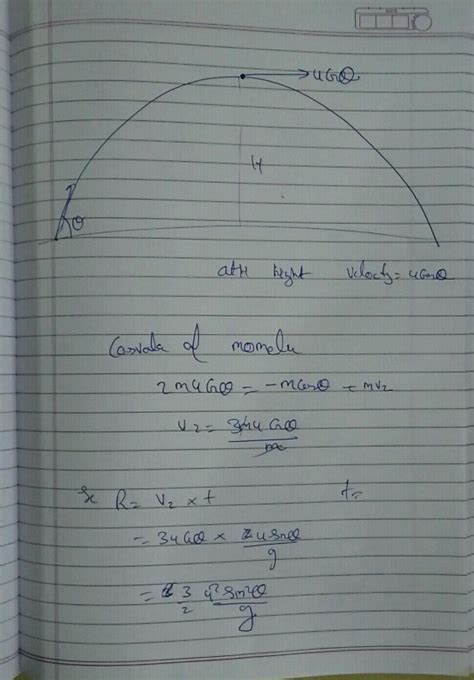 uCosθ
H
θ
at H hight velocity = uCosθ
Conservation of momentum
2muCosθ = -mCosθ + mv₂
v₂ = 3muCosθ / m
R = v₂ × t t =
= 3uCosθ × 2uSinθ / g
= 3/2 u²Sin2θ / g